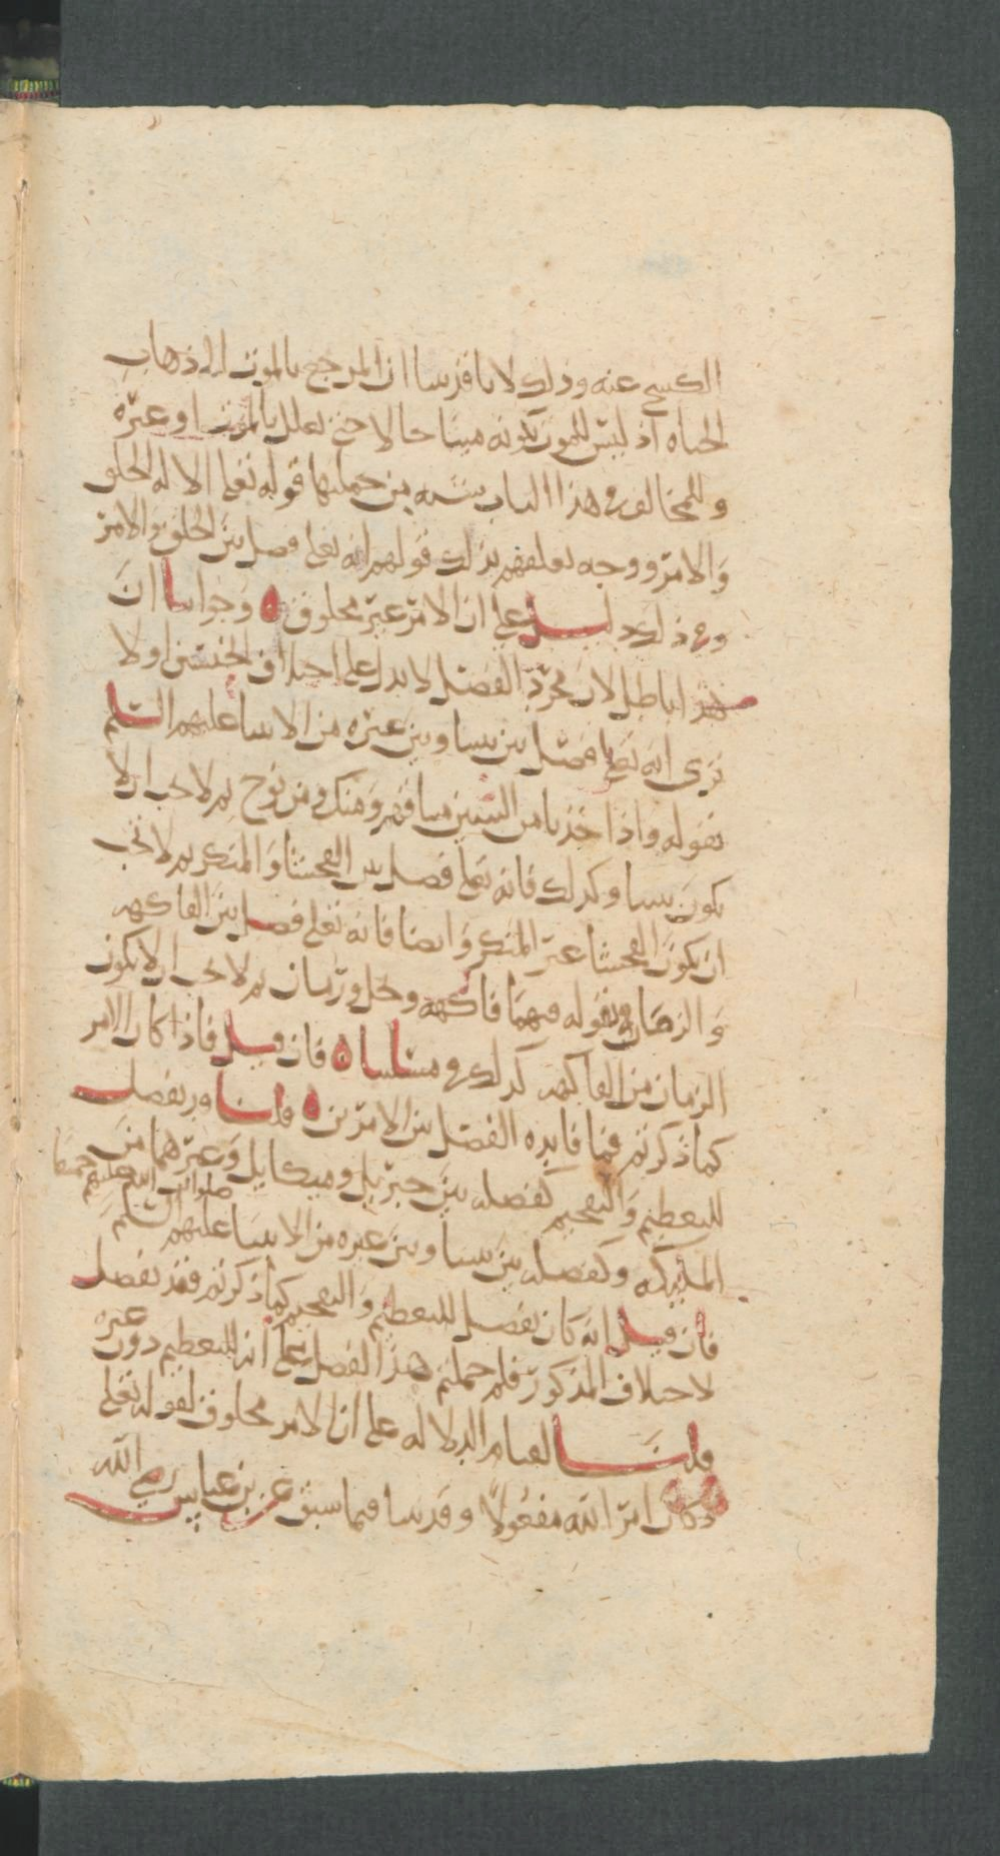 الكسي عنه وذلك لانا قد بينا ان المرجع بالموت الى ذهاب
الحياة اذ ليس للموت بكونه ميتا حال لا حتى تعلل بالموت او غيره
وللمخالف في هذا الباب شبه من جملتها قوله تعلى الا له الخلق
والامر ووجه تعلقهم بذلك قولهم انه تعلى فصل بين الخلق والامر
وفي ذلك دليل على ان الامر غير مخلوق ه وجوابنا ان
هذا باطل لان مجرد الفصل لا يدل على اختلاف الجنسين اولا
ترى انه تعلى فصل بين نبينا وبين غيره من الانبيا عليهم السلم
بقوله واذ اخذنا من النبيين ميثاقهم ومنك ومن نوح ثم لا يجب ان لا
يكون نبيا وكذلك فانه تعلى فصل بين الفحشا والمنكر ثم لا يجب
ان يكون الفحشا غير المنكر وايضا فانه تعلى فصل بين الفاكهه
والرمان بقوله فيهما فاكهة ونخل ورمان ثم لا يجب ان لا يكون
الرمان من الفاكهه كذلك في مسئلتنا ه فان قيل فاذا كان الامر
كما ذكرتم فما فايده الفصل بين الامرين ه قلنا قد يفصل
للتعظيم والتفخيم كفصله بين جبريل وميكايل وغيرهما من
الملئكه وكفصله بين نبينا وبين غيره من الانبيا عليهم السلم صلوات الله عليهم جميعا
فان قيل انه كان يفصل للتعظيم والتفخيم كما ذكرتم فقد يفصل
لاختلاف المذكور فلم حملتم هذا الفصل على انه للتعظيم دون غيره
قلنا لقيام الدلاله على ان الامر مخلوق لقوله تعلى
وكان امر الله مفعولا وقد بينا فيما سبق عن بن عباس رضي الله